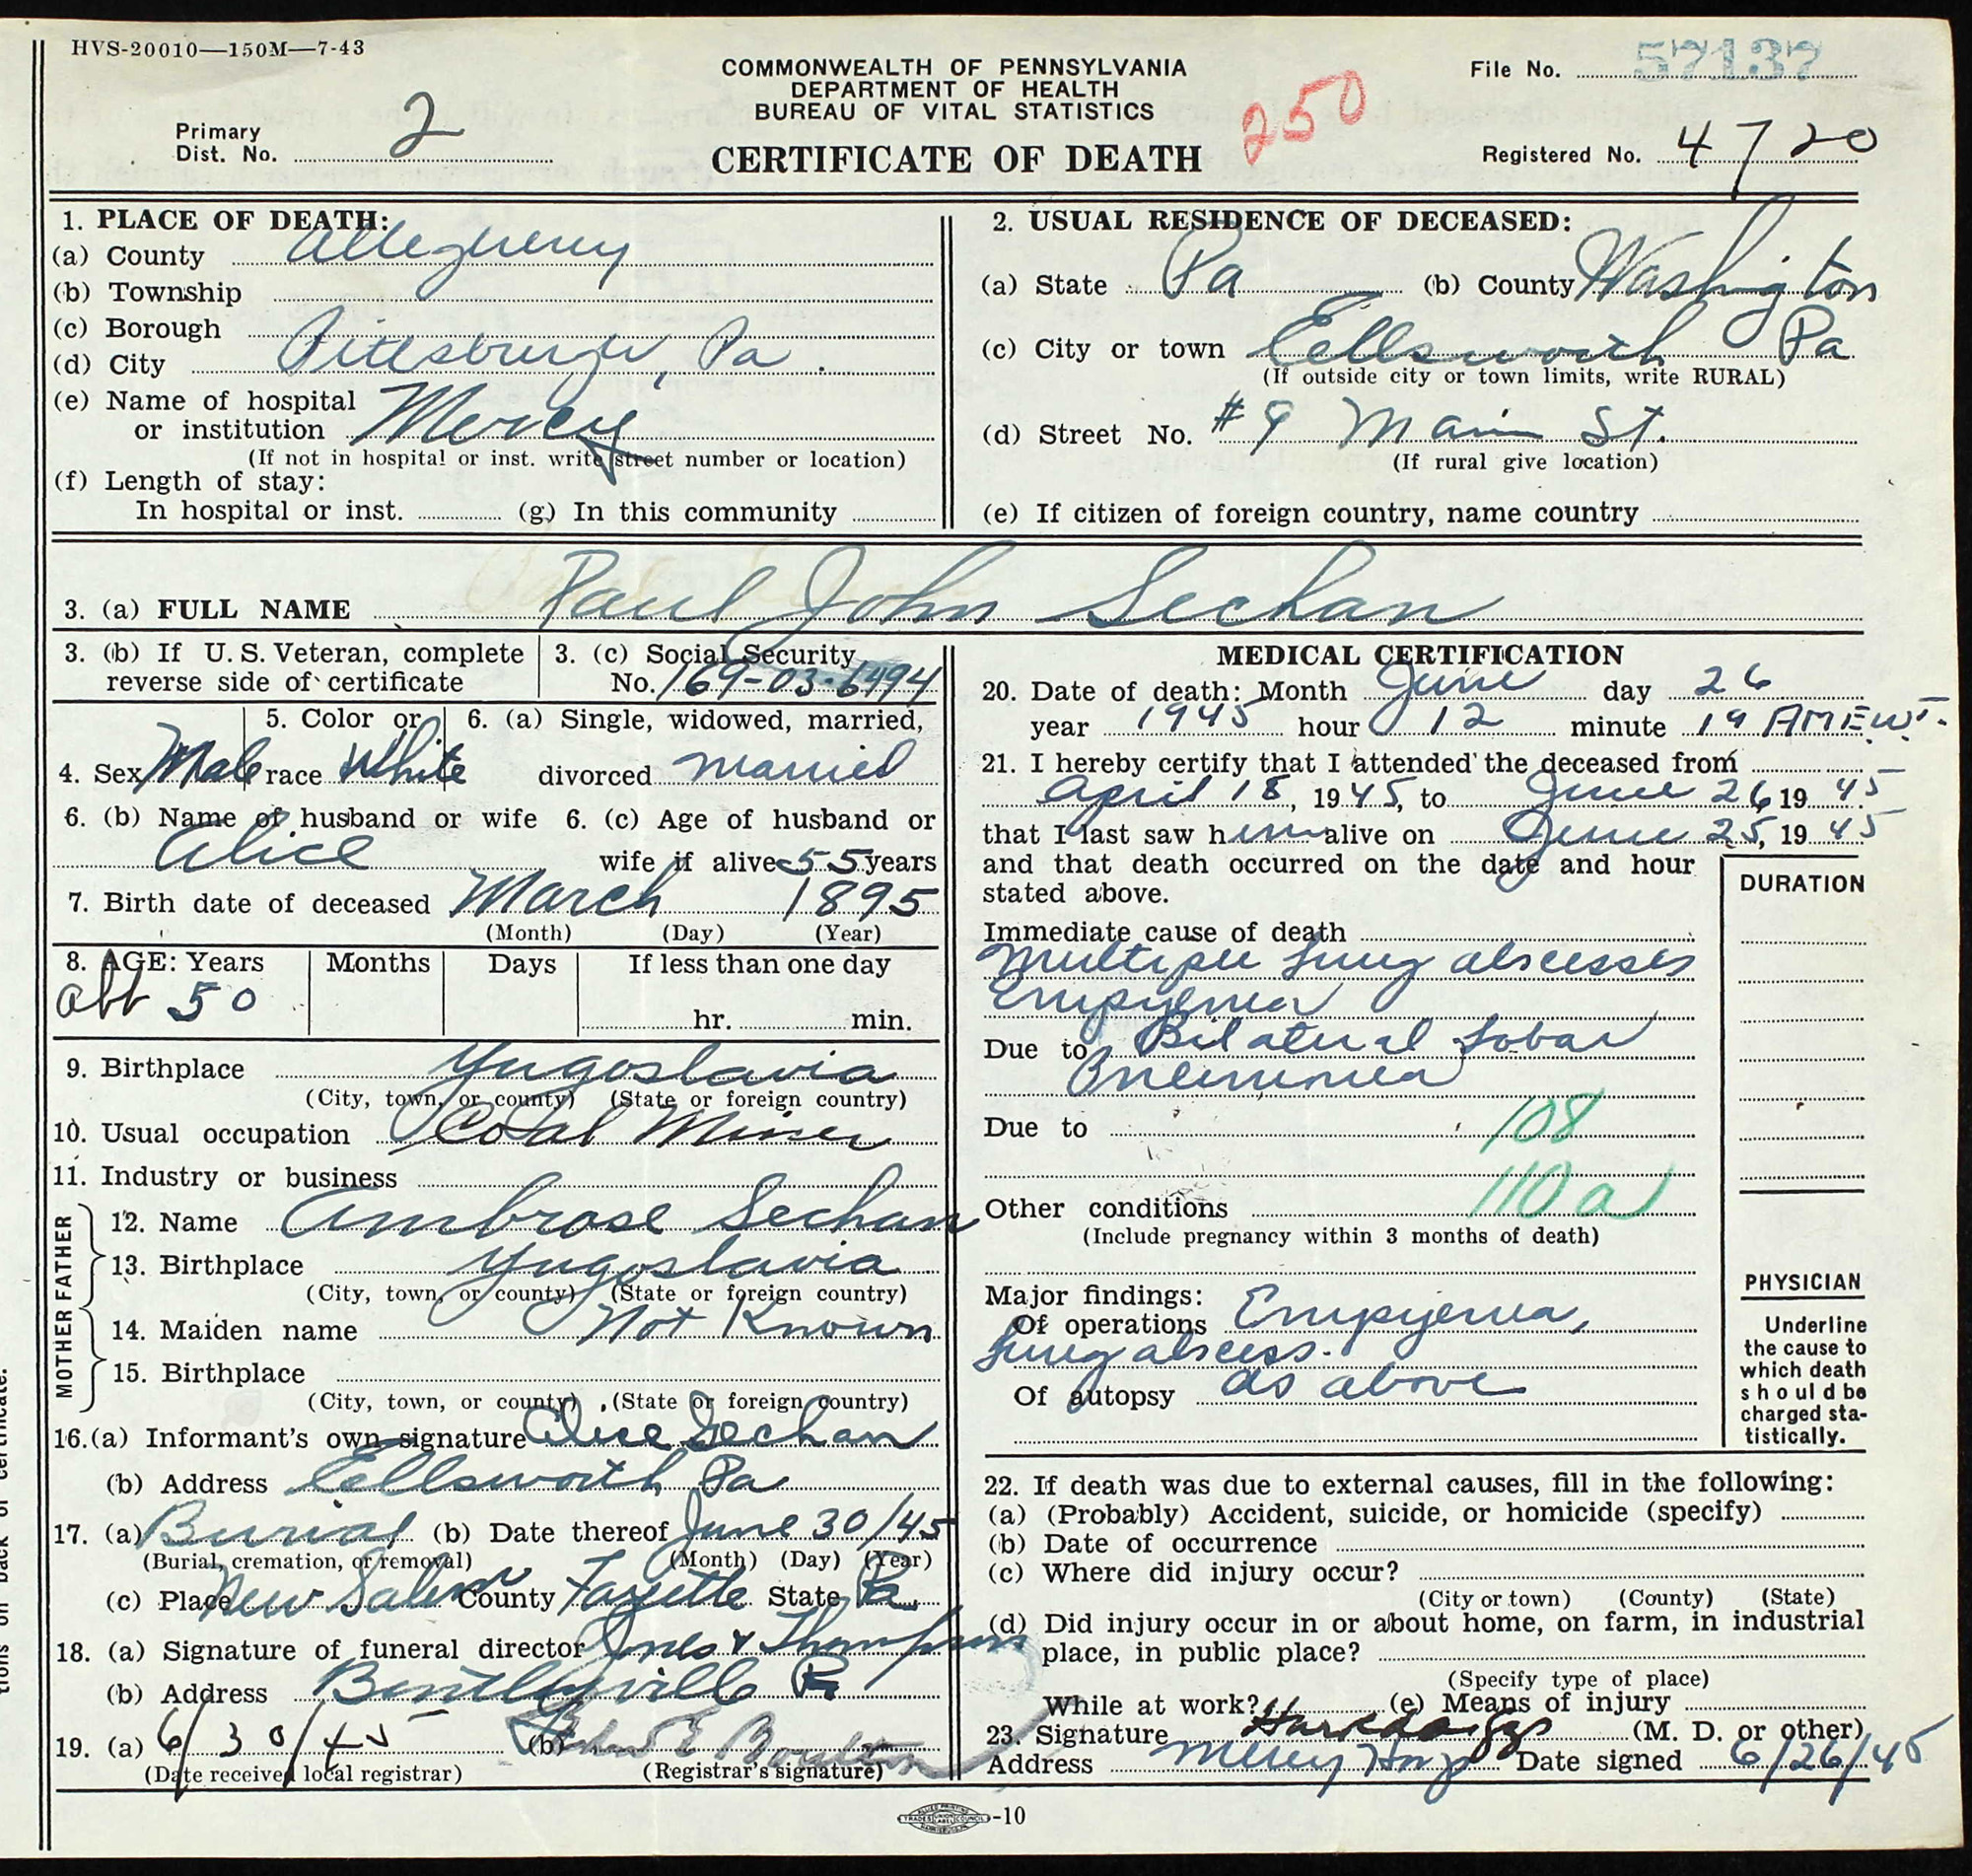 HVS-20010—150M—7-43
COMMONWEALTH OF PENNSYLVANIA
DEPARTMENT OF HEALTH
BUREAU OF VITAL STATISTICS
CERTIFICATE OF DEATH
250
File No. 57137
Primary
Dist. No. 2
Registered No. 4720
1. PLACE OF DEATH:
(a) County Allegheny
(b) Township
(c) Borough
(d) City Pittsburgh, Pa.
(e) Name of hospital
or institution Mercy
(If not in hospital or inst. write street number or location)
(f) Length of stay:
In hospital or inst. (g) In this community
2. USUAL RESIDENCE OF DECEASED:
(a) State Pa (b) County Washington
(c) City or town Ellsworth Pa
(If outside city or town limits, write RURAL)
(d) Street No. #9 Main St.
(If rural give location)
(e) If citizen of foreign country, name country
3. (a) FULL NAME Paul John Sechan
3. (b) If U.S. Veteran, complete
reverse side of certificate
3. (c) Social Security
No. 169-03-6494
4. Sex Male
5. Color or
race White
6. (a) Single, widowed, married,
divorced married
6. (b) Name of husband or wife
Alice
6. (c) Age of husband or
wife if alive 55 years
7. Birth date of deceased March 1895
(Month) (Day) (Year)
8. AGE: Years Months Days If less than one day
abt 50
hr. min.
9. Birthplace Yugoslavia
(City, town, or county) (State or foreign country)
10. Usual occupation Coal Miner
11. Industry or business
FATHER
12. Name Ambrose Sechan
13. Birthplace Yugoslavia
(City, town, or county) (State or foreign country)
MOTHER
14. Maiden name Not Known
15. Birthplace
(City, town, or county) (State or foreign country)
16.(a) Informant's own signature Alice Sechan
(b) Address Ellsworth Pa
17. (a) Burial (b) Date thereof June 30/45
(Burial, cremation, or removal) (Month) (Day) (Year)
(c) Place New Salem County Fayette State Pa.
18. (a) Signature of funeral director Jones & Thompson
(b) Address Bentleyville Pa
19. (a) 6/30/45 (b) E Boulton
(Date received local registrar) (Registrar's signature)
MEDICAL CERTIFICATION
20. Date of death: Month June day 26
year 1945 hour 12 minute 19 AM E.W.T.
21. I hereby certify that I attended the deceased from
April 18, 1945, to June 26 19 45
that I last saw him alive on June 25, 19 45
and that death occurred on the date and hour
stated above.
DURATION
Immediate cause of death
Multiple lung abscesses
Empyema
Due to Bilateral Lobar
Pneumonia
Due to 108
110a
Other conditions
(Include pregnancy within 3 months of death)
Major findings:
Of operations Empyema,
lung abscess.
Of autopsy as above
PHYSICIAN
Underline
the cause to
which death
should be
charged sta-
tistically.
22. If death was due to external causes, fill in the following:
(a) (Probably) Accident, suicide, or homicide (specify)
(b) Date of occurrence
(c) Where did injury occur?
(City or town) (County) (State)
(d) Did injury occur in or about home, on farm, in industrial
place, in public place?
(Specify type of place)
While at work? (e) Means of injury
23. Signature (M. D. or other)
Address Mercy Hosp Date signed 6/26/45
-10